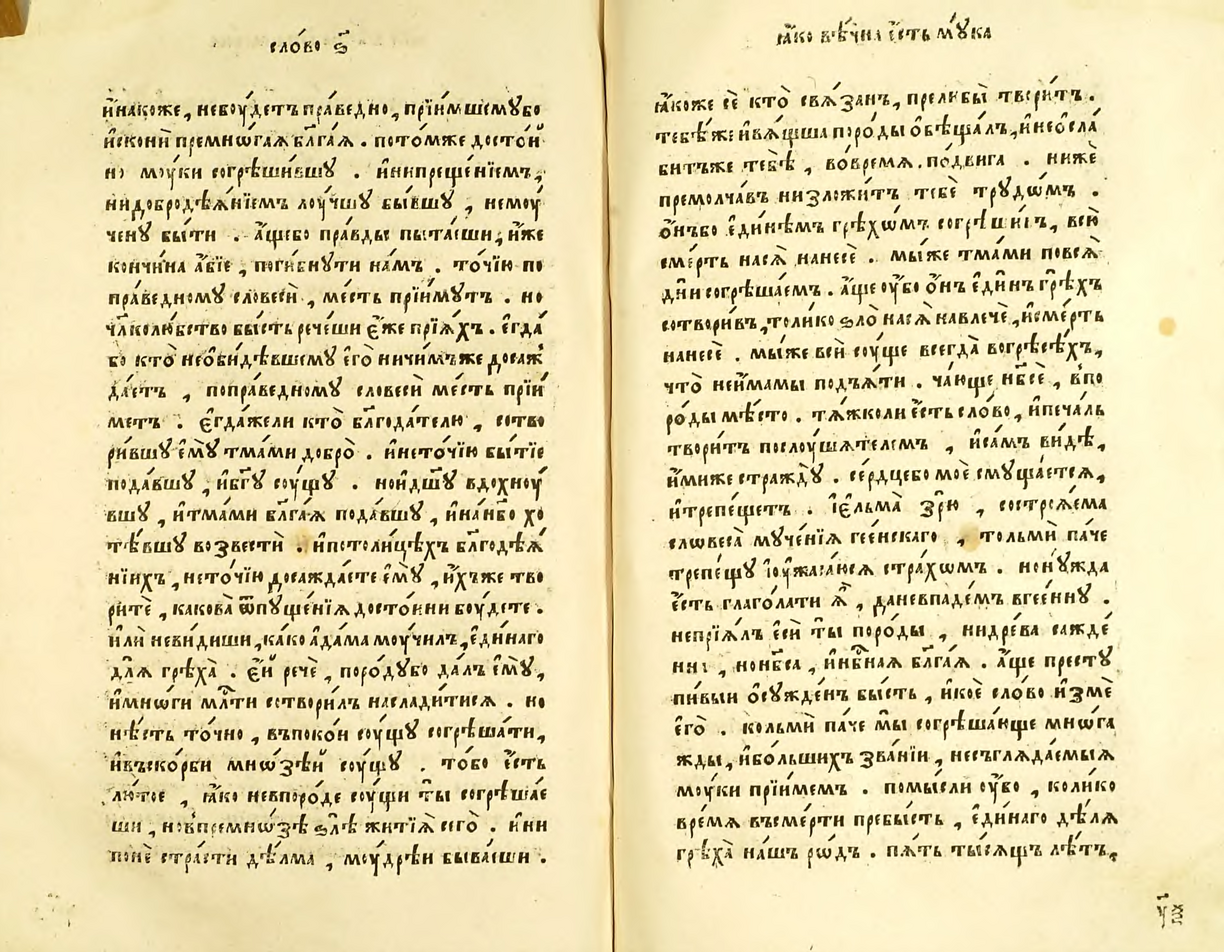 сло́во ѕ҃
и҆на́коже, небоу́детъ пра́ведно, прїи́мшемꙋбо
и҆сконѝ премнѡ́гаѧ бл҃га́ѧ . пото́мже досто́й
но моу́ки согрѣши́вшꙋ . и҆нипреще́нїемъ,
нидобродѣѧ́нїемъ лоу́чшꙋ бы́вшꙋ , немоу́
ченꙋ бы́ти . а҆́щебо пра́вды пыта́еши, и҆́же
кончи́на а҆́бїе , поги́бнꙋти на́мъ . то́чїю по
пра́ведномꙋ словесѝ , ме́сть прїи́мꙋтъ . но
чл҃колю́бство бы́сть рече́ши є҆́же прїѧ́хъ . є҆гда́
бо кто̀ неѡби́дѣвшемꙋ є҆го̀ ничи́мъже досаж
да́етъ , попра́ведномꙋ словесѝ ме́сть прїи́
метъ . є҆гда́жели кто̀ бл҃года́телю , сотво
ри́вшꙋ є҆мꙋ̀ тма́ми добро̀ . и҆нето́чїю бытїѐ
пода́вшꙋ , и҆бг҃ꙋ соу́щꙋ . нои҆дш҃ꙋ вдохноу́
вшꙋ , и҆тма́ми бл҃га́ѧ пода́вшꙋ , и҆нан҃бо хо
тѣ́вшꙋ возвестѝ . и҆потоли́цѣхъ бл҃годѣѧ́
нїихъ , нето́чїю досажда́ете є҆мꙋ̀ , и҆́хъже тво
ритѐ , какова̀ ѿпꙋще́нїѧ досто́йни боу́дете .
и҆лѝ неви́диши, ка́ко а҆да́ма моу́чилъ, є҆ди́наго
для грѣха̀ . є҆́й речѐ , поро́дꙋбо да́лъ є҆мꙋ̀,
и҆мнѡ́ги мл҃ти сотвори́лъ наслади́тисѧ . но
нѣ́сть то́чно , въпоко́и соу́щꙋ согрѣша́ти,
и҆въско́рби мнѡ́зѣй соу́щꙋ . то́бо є҆́сть
лю́тое , ꙗ҆́ко невпоро́де соу́щи ты̀ согрѣша́е
ши , новпремнѡ́зѣ ѕлѣ̀ житїѧ̀ сегѡ̀ . и҆ни
понѐ стра́сти дѣ́лма , моудрѣ́и быва́еши .
ꙗ҆́ко вѣ́чна є҆́сть мꙋ́ка
ꙗ҆́коже сѐ кто̀ свѧ́занъ, прелибы̀ твори́тъ .
тебѣ́же и҆вѧ́щша поро́ды ѡ҆бѣща́лъ, и҆неѡсла́
битъже тебѣ̀ , во́время подви́га . нижѐ
премолча́въ низложи́тъ тебѐ трꙋдѡ́мъ .
ѻ҆́нъбо є҆ди́нѣмъ грѣхѡ́мъ согрѣши́въ, всю̀
сме́рть насѧ̀ нанесѐ . мы́же тма́ми повсѧ̀
дн҃и согрѣша́емъ . а҆́ще оу҆́бо ѻ҆́нъ є҆ди́нъ грѣ́хъ
сотвори́въ, толи́ко ѕло̀ насѧ̀ навлечѐ , и҆сме́рть
нанесѐ . мы́же всѝ соу́ще всегда̀ вогрѣсѣ́хъ,
что̀ неи҆́мамы подъѧ́ти . ча́юще нб҃сѐ , в҆по
ро́ды мѣ́сто . тѧ́жколи є҆́сть сло́во, и҆печа́ль
твори́тъ послоу́шѧтелемъ , и҆са́мъ ви́дѣ,
и҆́миже стражд́ꙋ . се́рдцебо моѐ смꙋща́етсѧ,
и҆трепе́щетъ . і҆єльма̀ зрю̀ , состроѧ́ема
словеса̀ мꙋче́нїѧ гее́нскаго , тольмѝ па́че
трепе́щꙋ і҆оу҆жаса́юсѧ стра́хомъ . нонꙋ́жда
є҆́сть глаго́лати ѧ҆̀ , даневпаде́мъ вгее́ннꙋ .
непрїѧ́лъ є҆сѝ ты̀ поро́ды , нидре́ва сажде́
нна , нонб҃са , и҆нбⷭ҇наѧ бл҃га́ѧ . а҆́ще престꙋ
пи́выи ѡ҆сꙋжде́нъ бы́сть , и҆ко́е сло́во и҆змѐ
є҆го̀ . кольмѝ па́че мы̀ согрѣша́юще мно́га
жды, и҆бо́льшихъ зва́нїи , несъглѧда́емыѧ
моу́ки прїи́мемъ . помы́сли оу҆́бо , коли́ко
вре́мѧ въсме́рти пребы́сть , є҆ди́наго дѣ́лѧ
грѣха̀ на́шъ рѡ́дъ . пѧ́ть ты́сѧщъ лѣ́тъ,